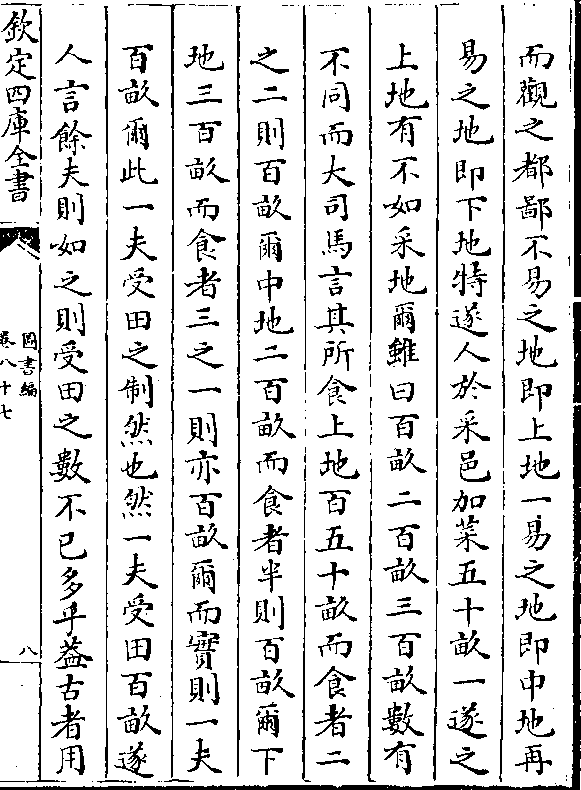 而觀之都鄙不易之地即上地一易之地即中地再
易之地即下地特遂人於采邑加萊五十畝一遂之
上地有不如采地爾雖曰百畝二百畝三百畝數有
不同而大司馬言其所食上地百五十畝而食者三
之二則百畝爾中地二百畝而食者半則百畝爾下
地三百畝而食者三之一則亦百畝爾而實則一夫
百畝爾此一夫受田之制然也然一夫受田百畝遂
人言餘夫則如之則受田之數不已多乎葢古者用
欽定四庫全書
圖書編
卷八十七
八